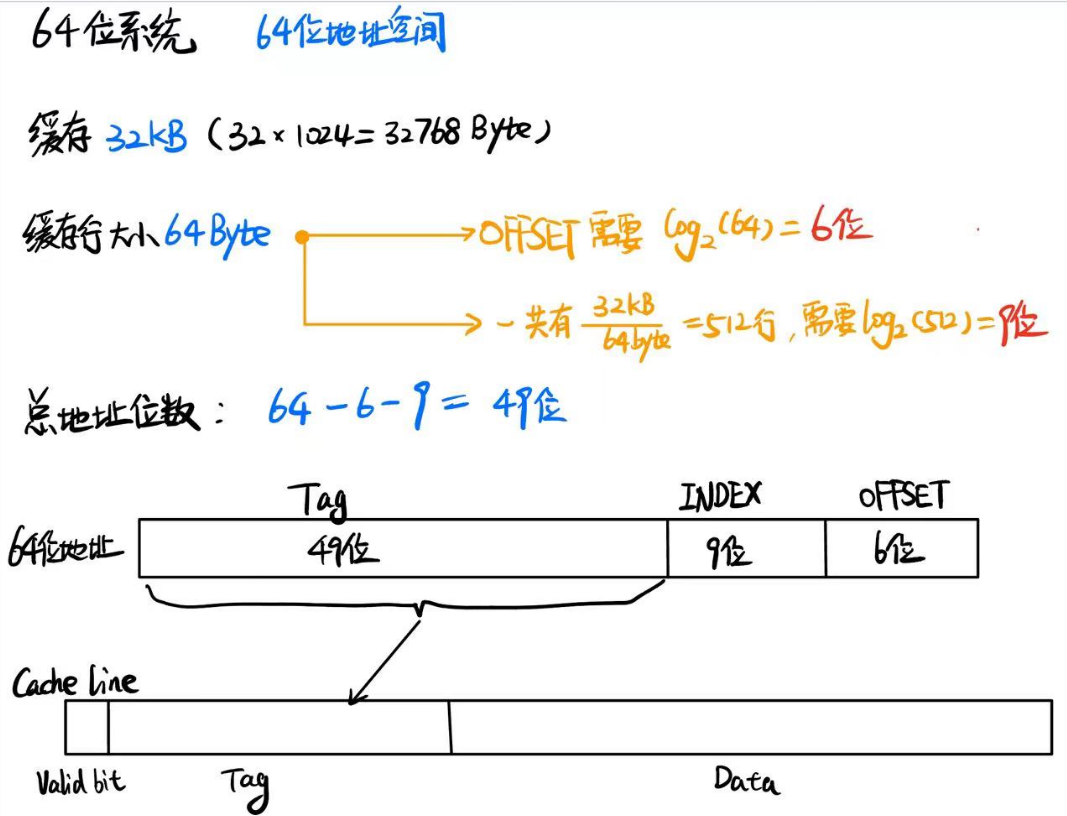 64位系统 64位地址空间
缓存 32kB (32×1024=32768 Byte)
缓存行大小 64 Byte
OFFSET 需要 log₂(64) = 6位
一共有 32kB / 64byte = 512行, 需要 log₂(512) = 9位
总地址位数: 64 - 6 - 9 = 49位
Tag INDEX OFFSET
64位地址 49位 9位 6位
Cache line
Valid bit Tag Data